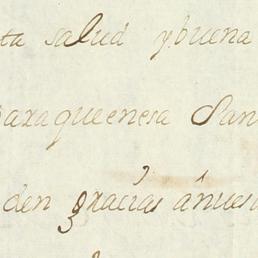 ta salud y buena
paraqueenesa San
den gracias ánues